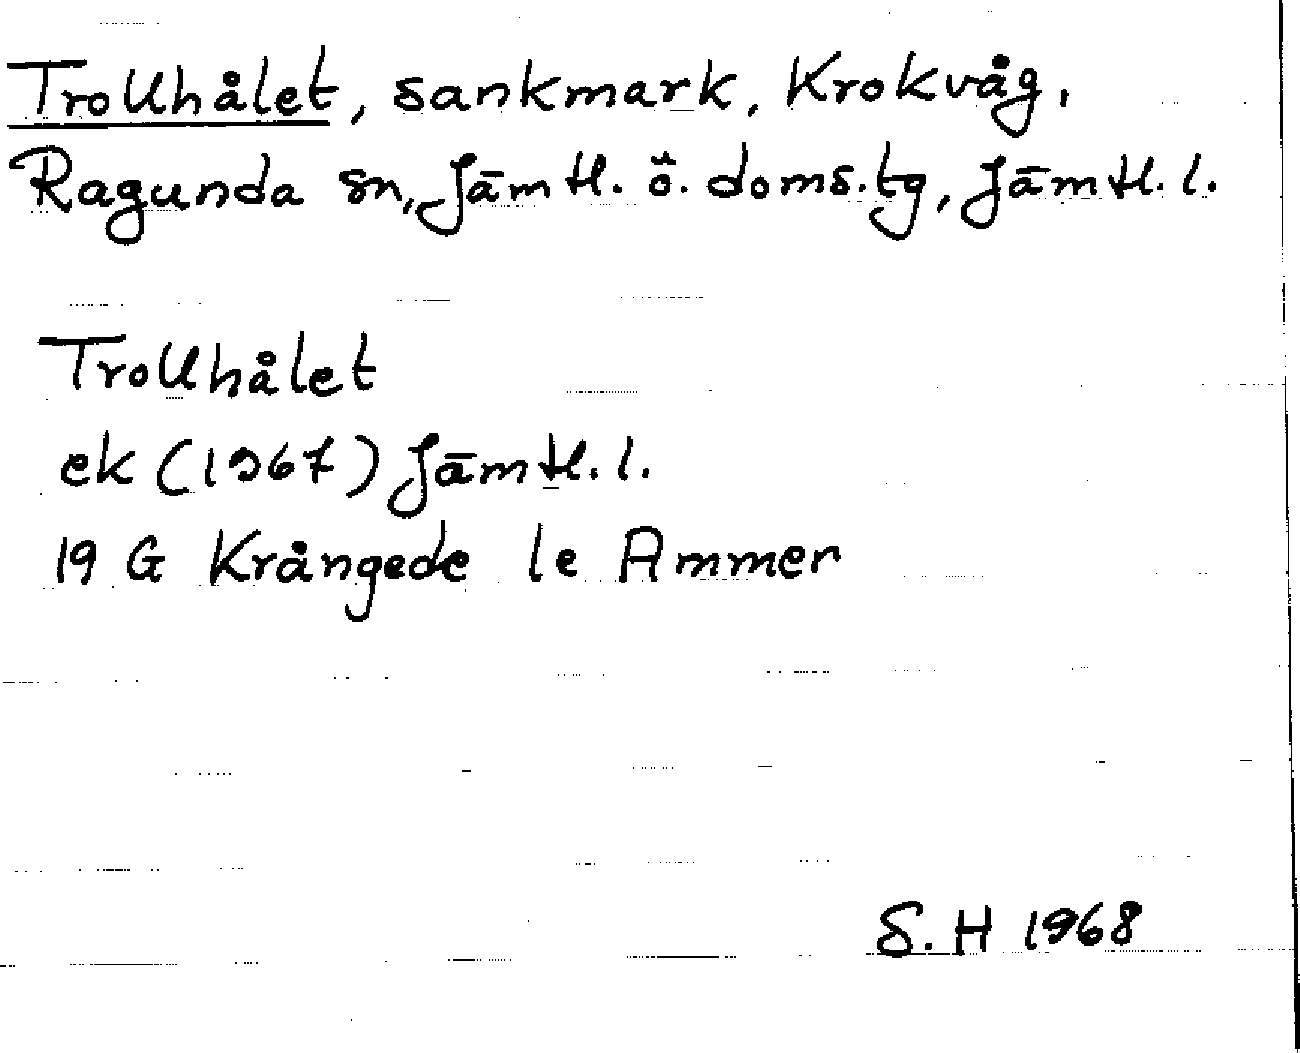 Trollhålet, sankmark, Krokvåg,
Ragunda sn, Jämtl. ö. doms.tg, Jämtl. l.
Trollhålet
ek (1967) Jämtl. l.
19 G Krångede le Ammer
S. H 1968